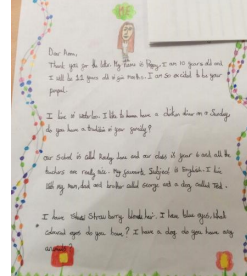 Dear Anna,
Thank you for the letter. My name is Poppy. I am 10 years old and
I will be 11 years old in six months. I am so excited to be your
penpal.
I live in I like to have a dinner on a Sunday,
do you have a tradition in your family?
our School is called Lane and our class is year 6 and all the
teachers are really nice. My favourite Subject is English. I live
with my mum, dad and brother called George and a dog called Ted.
I have Strawberry blonde hair. I have blue eyes, what
coloured eyes do you have? I have a dog, do you have any